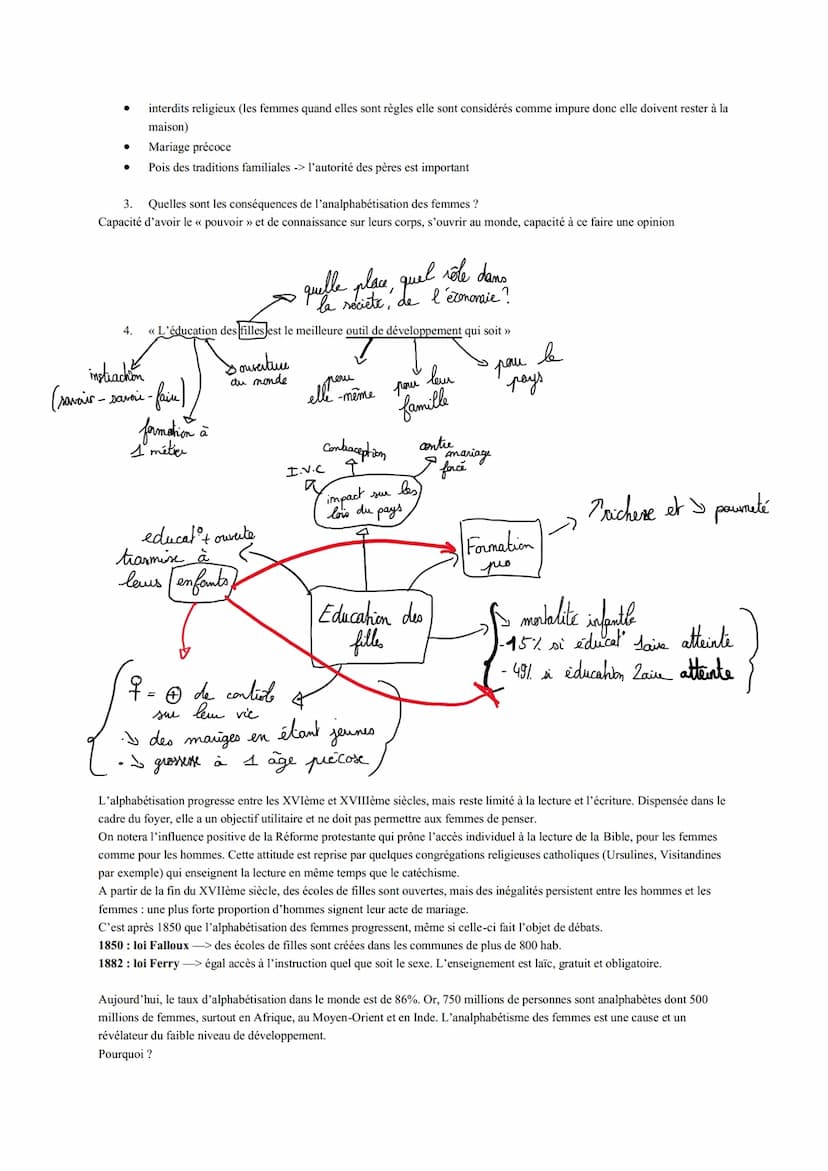 • interdits religieux (les femmes quand elles sont règles elle sont considérés comme impure donc elle doivent rester à la
maison)
• Mariage précoce
• Pois des traditions familiales -> l'autorité des pères est important
3. Quelles sont les conséquences de l'analphabétisation des femmes ?
Capacité d'avoir le « pouvoir » et de connaissance sur leurs corps, s'ouvrir au monde, capacité à ce faire une opinion
quelle place, quel rôle dans
la société, de l'économie?
4. « L'éducation des filles est le meilleure outil de développement qui soit »
instruction
(savoir - savoir - faire)
formation à
1 métier
ouverture
au monde
pour
elle-même
pour leur
famille
pour le
pays
I.V.C
Contraception
contre
mariage
forcé
impact sur les
lois du pays
educat° + ouverte
transmise à
leurs enfants
Formation
pro
↗ richesse et ↘ pauvreté
Education des
filles
↘ mortalité infantile
-15% si éducat° 1aire atteinte
- 49% si éducation 2aire atteinte
♀ = ⊕ de contrôle
sur leur vie
· ↘ des mariges en étant jeunes
· ↘ grossesse à 1 âge précose
L'alphabétisation progresse entre les XVIème et XVIIIème siècles, mais reste limité à la lecture et l'écriture. Dispensée dans le
cadre du foyer, elle a un objectif utilitaire et ne doit pas permettre aux femmes de penser.
On notera l'influence positive de la Réforme protestante qui prône l'accès individuel à la lecture de la Bible, pour les femmes
comme pour les hommes. Cette attitude est reprise par quelques congrégations religieuses catholiques (Ursulines, Visitandines
par exemple) qui enseignent la lecture en même temps que le catéchisme.
A partir de la fin du XVIIème siècle, des écoles de filles sont ouvertes, mais des inégalités persistent entre les hommes et les
femmes : une plus forte proportion d'hommes signent leur acte de mariage.
C'est après 1850 que l'alphabétisation des femmes progressent, même si celle-ci fait l'objet de débats.
1850 : loi Falloux —> des écoles de filles sont créées dans les communes de plus de 800 hab.
1882 : loi Ferry —> égal accès à l'instruction quel que soit le sexe. L'enseignement est laïc, gratuit et obligatoire.
Aujourd'hui, le taux d'alphabétisation dans le monde est de 86%. Or, 750 millions de personnes sont analphabètes dont 500
millions de femmes, surtout en Afrique, au Moyen-Orient et en Inde. L'analphabétisme des femmes est une cause et un
révélateur du faible niveau de développement.
Pourquoi ?